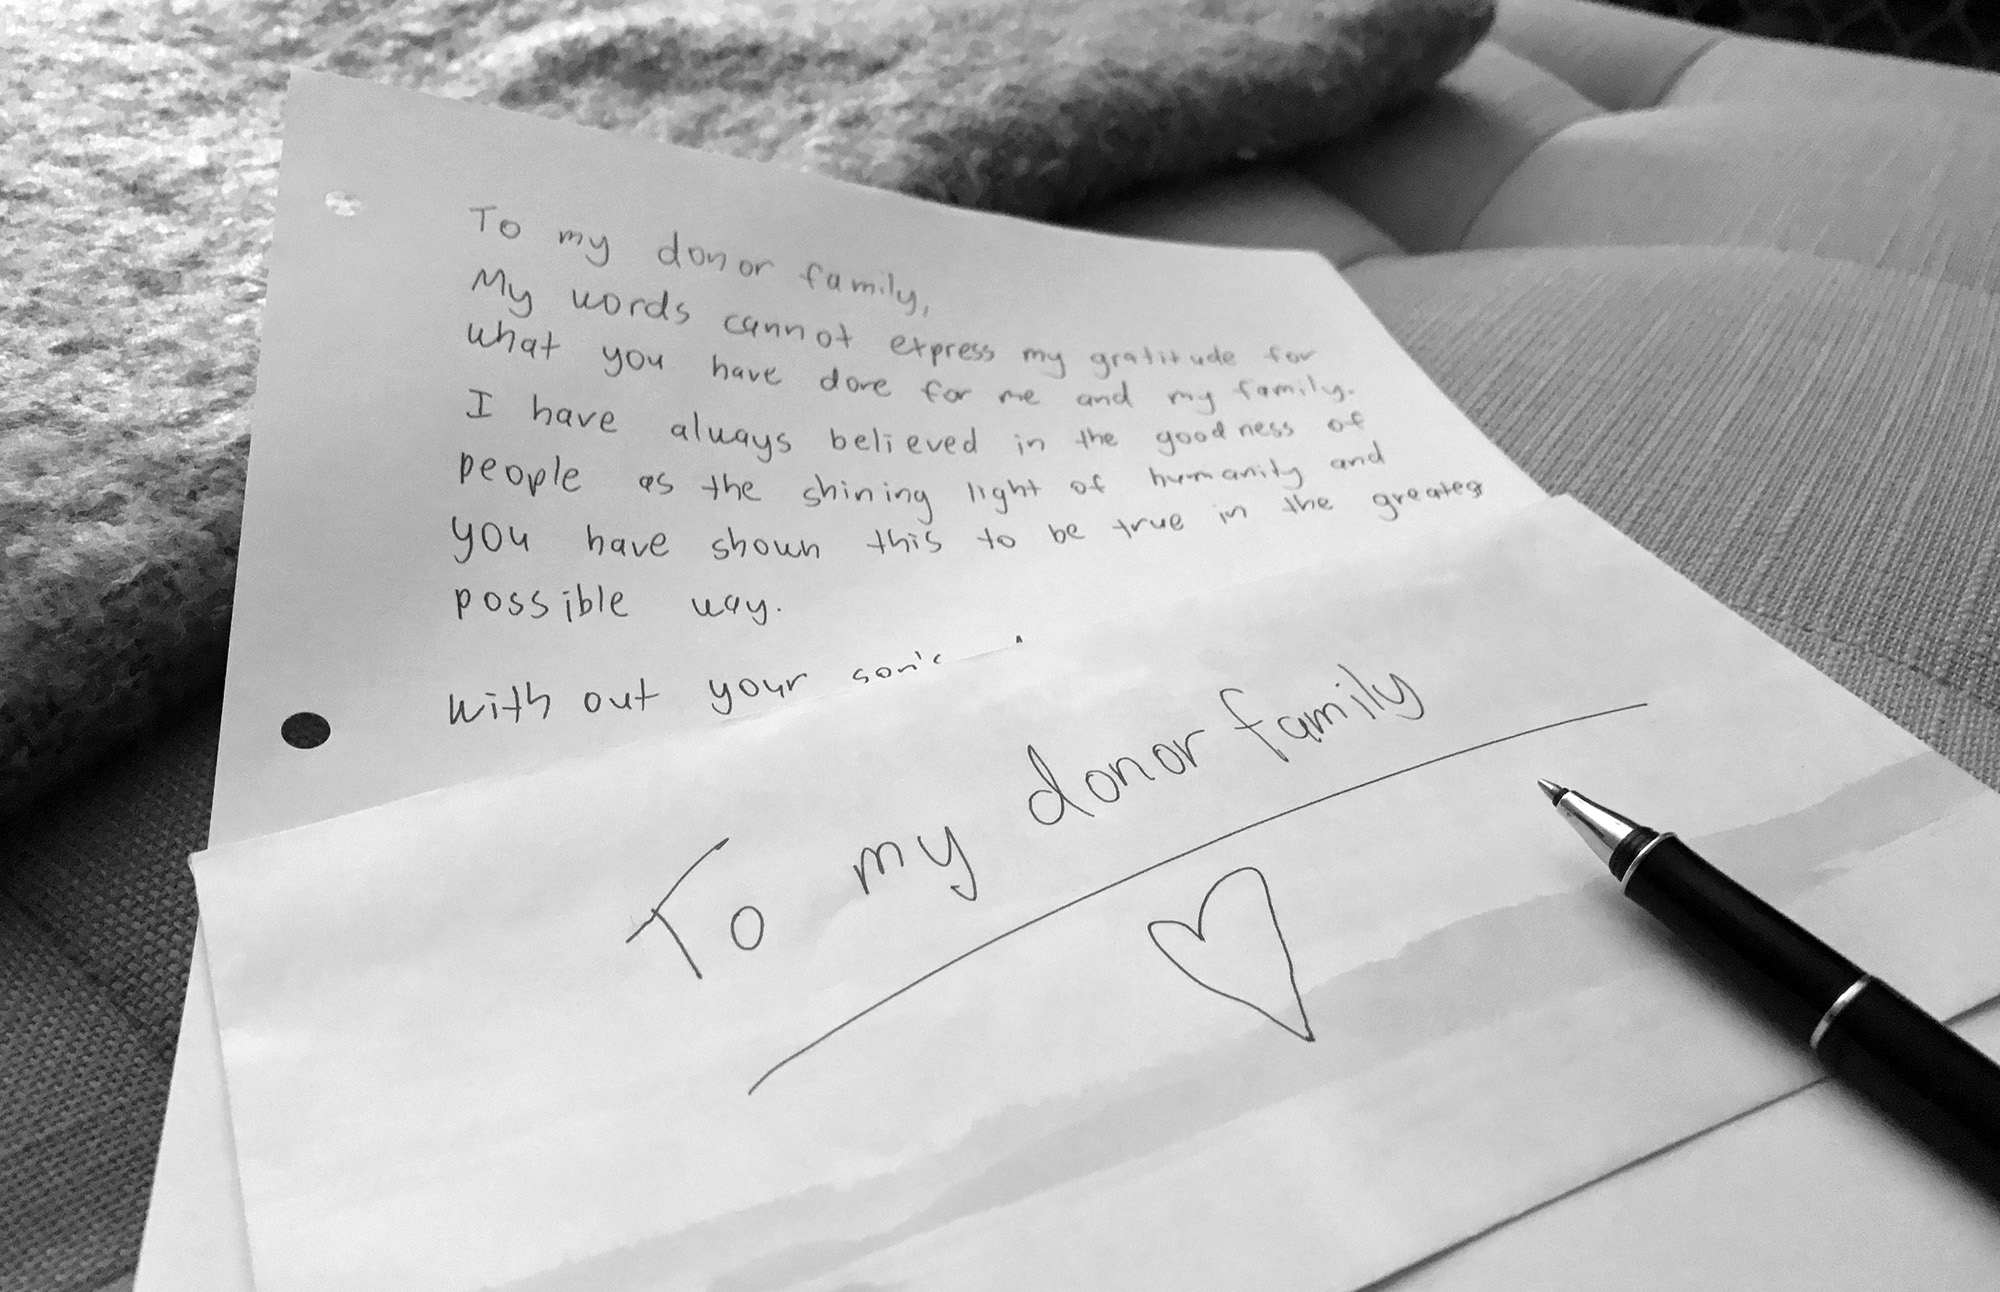 To my donor family,
My words cannot express my gratitude for
what you have done for me and my family.
I have always believed in the goodness of
people as the shining light of humanity and
you have shown this to be true in the greatest
possible way.
With out your son's
To my donor family